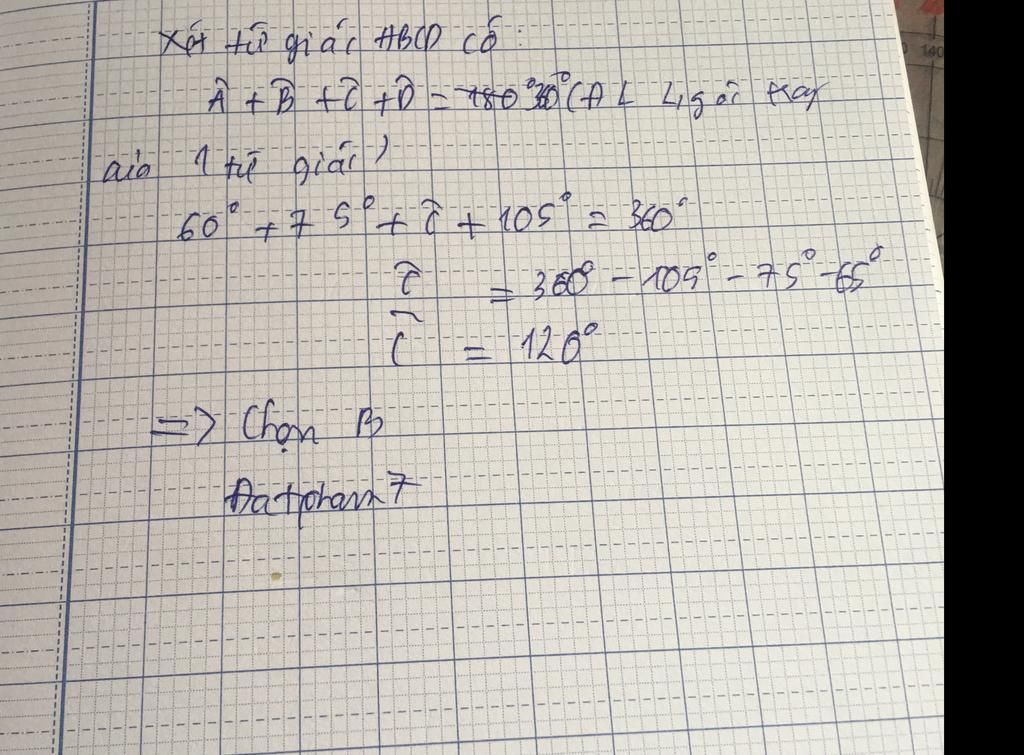 Xét tứ giác ABCD có:
Â + B̂ + Ĉ + D̂ = 180° 360° (ĐL 4 góc trong
của 1 tứ giác)
60° + 75° + Ĉ + 105° = 360°
Ĉ = 360° - 105° - 75° - 65°
Ĉ = 120°
=> Chọn B
Datpham7
140